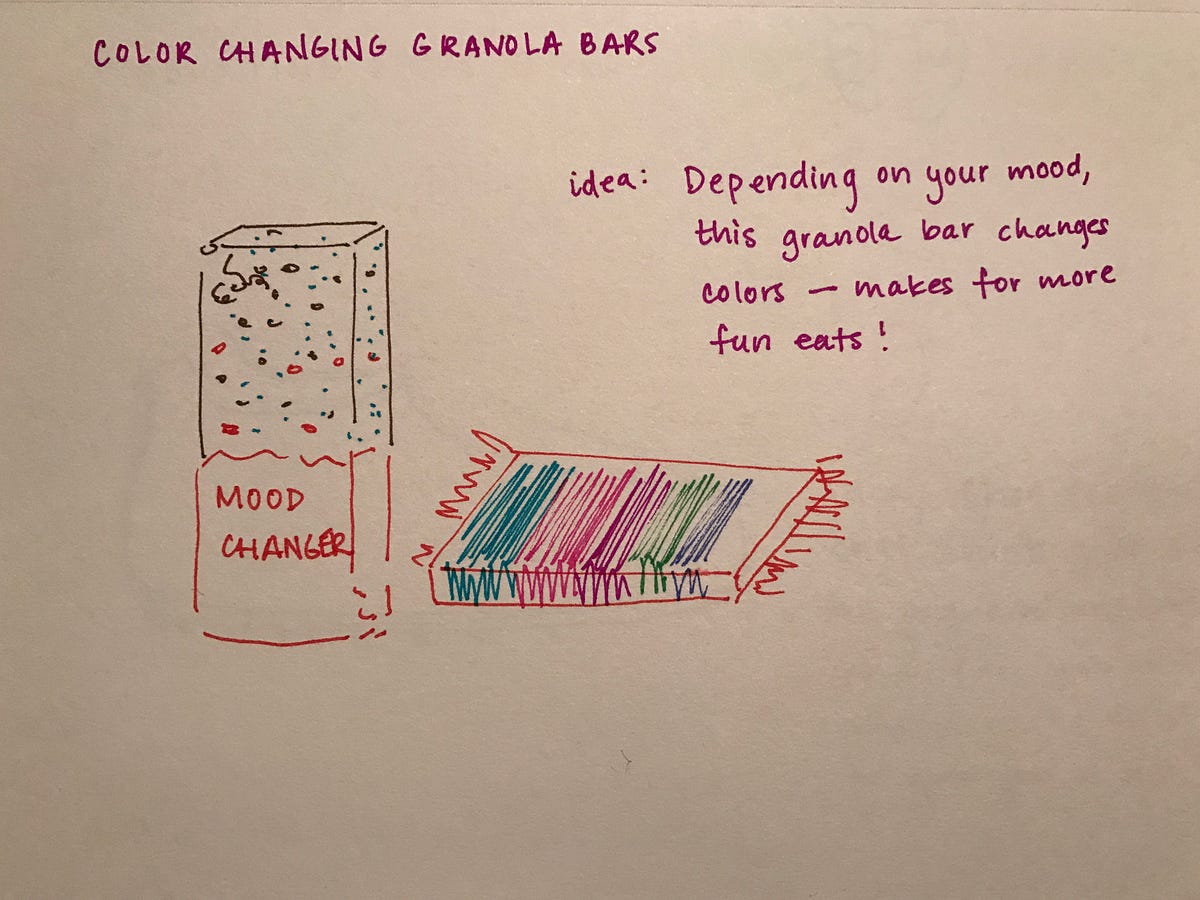 COLOR CHANGING GRANOLA BARS
idea: Depending on your mood,
this granola bar changes
colors — makes for more
fun eats!
MOOD
CHANGER